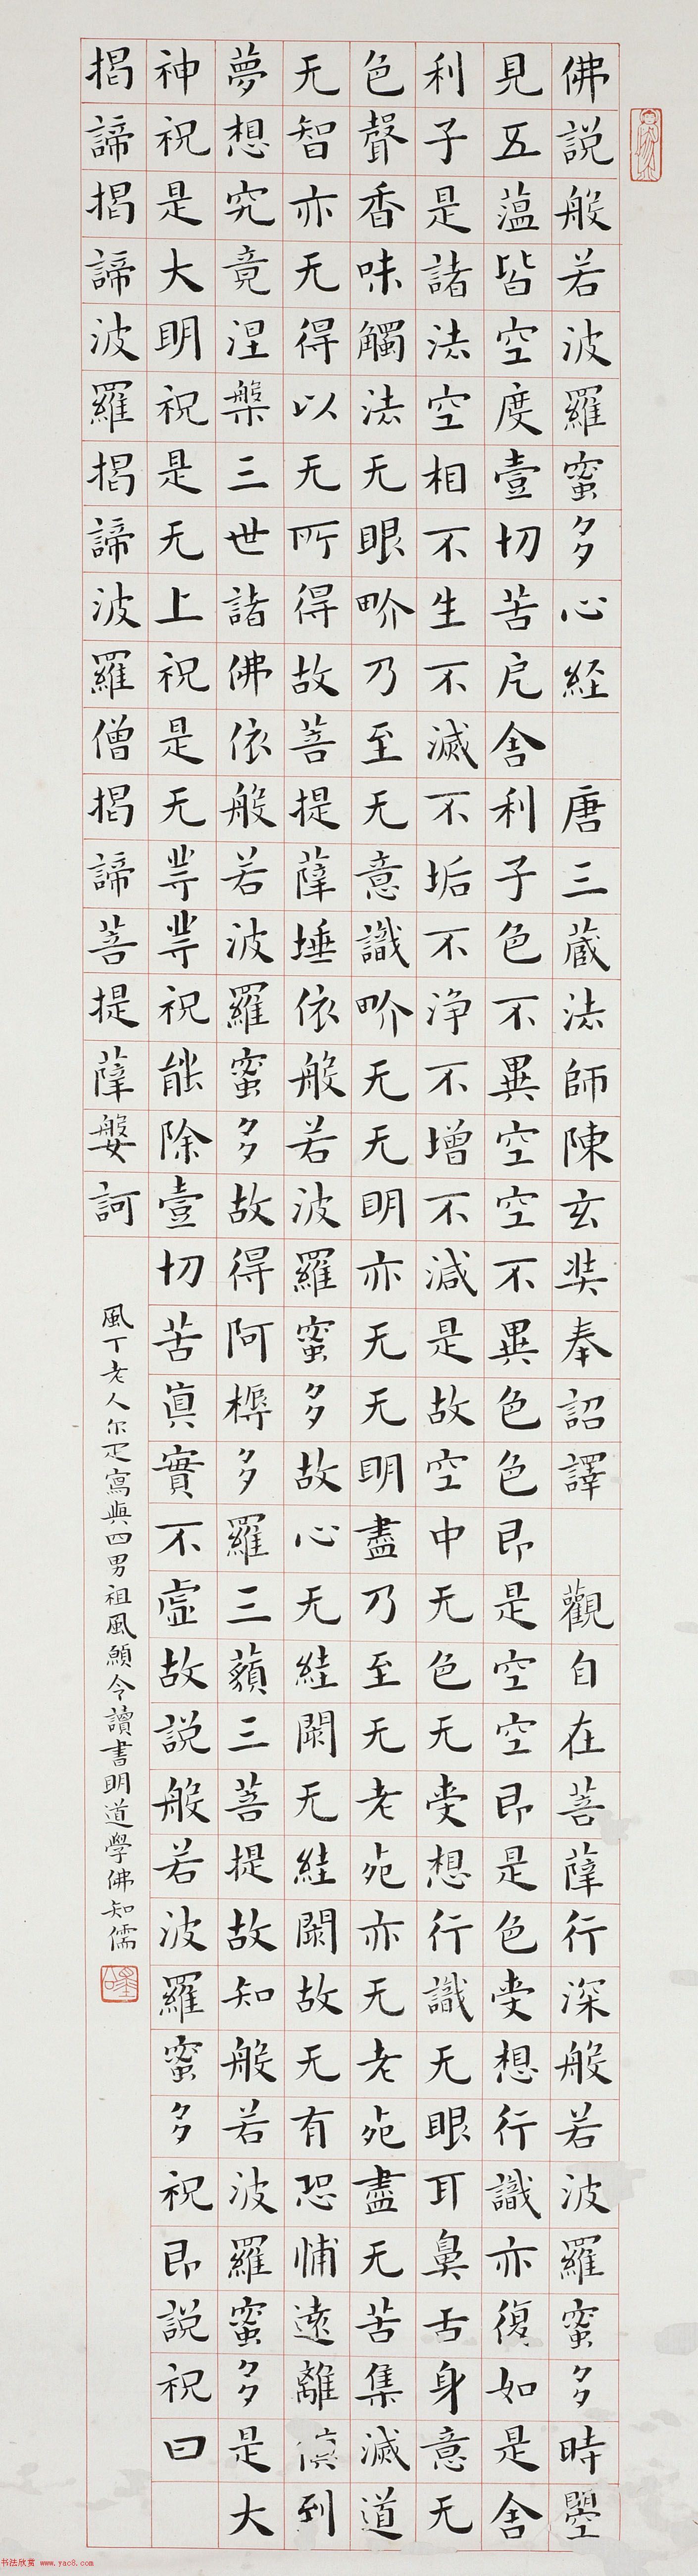 佛説般若波羅蜜多心經 唐三蔵法師陳玄奘奉詔譯 觀自在菩薩行深般若波羅蜜多時曌
見五薀皆空度壹切苦戹舍利子色不異空空不異色色即是空空即是色受想行識亦復如是舍
利子是諸法空相不生不滅不垢不浄不增不減是故空中无色无受想行識无眼耳鼻舌身意无
色聲香味觸法无眼畍乃至无意識畍无无明亦无无明盡乃至无老死亦无老死盡无苦集滅道
无智亦无得以无所得故菩提薩埵依般若波羅蜜多故心无絓閡无絓閡故无有恐悑遠離傎到
夢想究竟涅槃三世諸佛依般若波羅蜜多故得阿耨多羅三藐三菩提故知般若波羅蜜多是大
神祝是大明祝是无上祝是无等等祝能除壹切苦真實不虛故説般若波羅蜜多祝即説祝曰
揭諦揭諦波羅揭諦波羅僧揭諦菩提薩婆訶
風丁老人尔疋寫與四男祖風願令讀書明道學佛知儒
书法欣赏 www.yac8.com